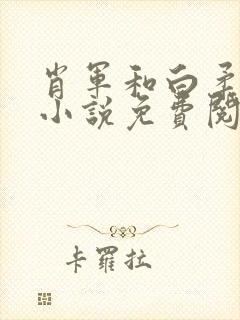 肖军和白柔
小説免費閱
卡羅拉